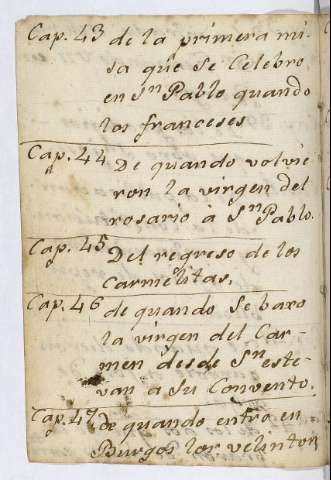 Cap. 43 de la primera mi
sa que se Celebro
en Sn Pablo quando
los franceses
Cap. 44 De quando volvie
ron la virgen del
rosario à Sn Pablo.
Cap. 45 Del regreso de los
Carmelitas.
Cap. 46 de quando se baxo
la virgen del Car-
men desde Sn este-
van a su Convento.
Cap. 47 de quando entro en
Burgos lor velinton